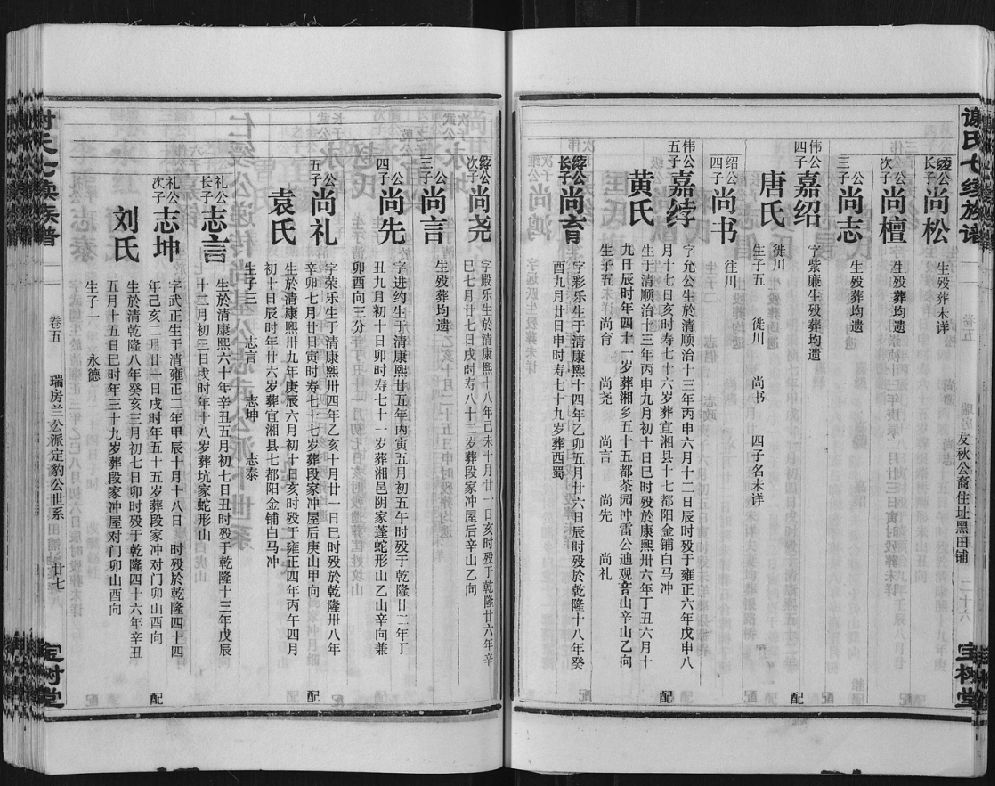 谢氏七缑族谱
友秋公裔住址黑田铺
宝树堂
绶公长子 尚松 生殁葬未详
次子 尚檀 生殁葬均遗
公三子 尚志 生殁葬均遗
伟公四子 嘉绍 字紫廉生殁葬均遗 配
唐氏 葬徙川
生子五 徙川 尚书 四子名未详
绍公四子 尚书 往川
伟公五子 嘉綍 字允公生於清顺治十三年丙申六月十二日辰时殁于雍正六年戊申八
月十七日亥时寿七十六岁葬宜湘县十七都阳金铺白马冲 配
黄氏 生于清顺治十三年丙申九月初十日巳时殁於康熙卅六年丁丑六月十
九日辰时年四十一岁葬湘乡五十五都茶园冲雷公迪观音山辛山乙向
生子五 尚育 尚尧 尚言 尚先 尚礼
綍公长子 尚育 字彤乐生于清康熙十四年乙卯五月廿六日辰时殁於乾隆十八年癸
酉九月廿日申时寿七十九岁葬西蜀
綍公次子 尚尧 字殿乐生於清康熙十八年己未十月廿一日亥时殁于乾隆廿六年辛
巳七月廿七日戌时寿八十三岁葬段家冲屋后辛山乙向
公三子 尚言 生殁葬均遗
公四子 尚先 字进约生于清康熙廿五年丙寅五月初五午时殁于乾隆廿二年丁
丑九月初十日卯时寿七十一岁葬湘邑阴家蓬蛇形山乙山辛向兼
卯酉向三分
公五子 尚礼 字荣乐生于清康熙卅四年乙亥十月廿一日巳时殁於乾隆卅八年
辛卯七月廿日寅时寿七十七岁葬段家冲屋后庚山甲向 配
袁氏 生於清康熙卅九年庚辰六月初十日亥时殁于雍正四年丙午四月
初十日辰时年廿六岁葬宜湘县七都阳金铺白马冲
生子三 志言 志坤 志泰
礼公长子 志言 生於清康熙六十年辛丑五月初七日丑时殁于乾隆十三年戊辰
十二月初三日戌时年十八岁葬坑家蛇形山
礼公次子 志坤 字武正生于清雍正二年甲辰十月十八日 时殁於乾隆四十四
年己亥二月廿一日戌时年五十五岁葬段家冲对门卯山酉向 配
刘氏 生於清乾隆八年癸亥三月初七日卯时殁于乾隆四十六年辛丑
五月十五日巳时年三十九岁葬段家冲屋对门卯山酉向
生子一 永德
卷五 瑞房兰公派定豹公世系 廿七